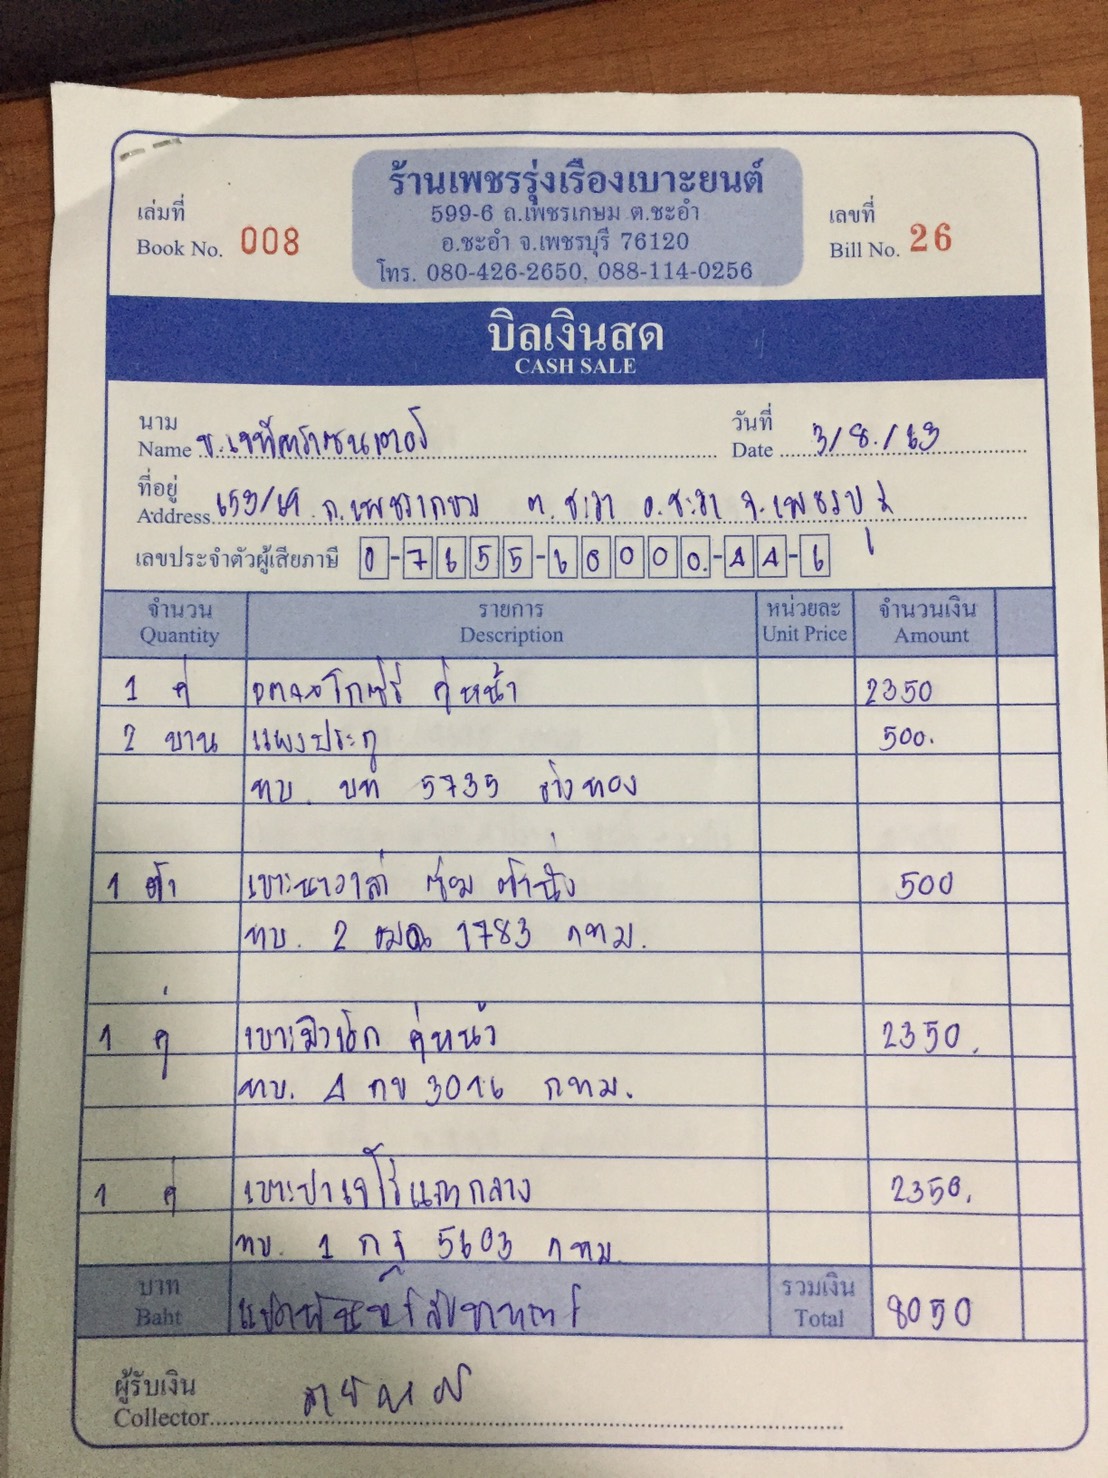 ร้านเพชรรุ่งเรืองเบาะยนต์
599-6 ถ.เพชรเกษม ต.ชะอำ
อ.ชะอำ จ.เพชรบุรี 76120
โทร. 080-426-2650, 088-114-0256
เล่มที่
Book No. 008
เลขที่
Bill No. 26
บิลเงินสด
CASH SALE
นาม
Name
วันที่
Date 3/8./63
ที่อยู่
Address 653/69 ถ.เพชรเกษม ต.ชะอำ อ.ชะอำ จ.เพชรบุรี
เลขประจำตัวผู้เสียภาษี 0-7655-60000.-44-6
จำนวน รายการ หน่วยละ จำนวนเงิน
Quantity Description Unit Price Amount
1 คู่ คู่หน้า 2350
2 บาน แผงประตู 500.
ทบ. บท 5735 อ่างทอง
1 ตัว เบาะนาวาล่า ซ่อม ตัวนั่ง 500
ทบ. 2 1783 กทม.
1 คู่ คู่หน้า 2350.
ทบ. 4 กข 3016 กทม.
1 คู่ เบาะปาเจโร่แถวกลาง 2350.
ทบ. 1 5603 กทม.
บาท
Baht แปดพันห้าสิบบาท
รวมเงิน
Total 8050
ผู้รับเงิน
Collector